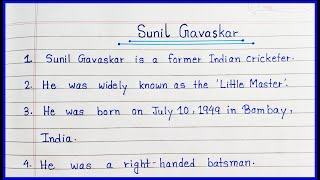 Sunil Gavaskar
1. Sunil Gavaskar is a former Indian cricketer.
2. He was widely known as the 'Little Master'.
3. He was born on July 10, 1949 in Bombay,
India.
4. He was a right-handed batsman.